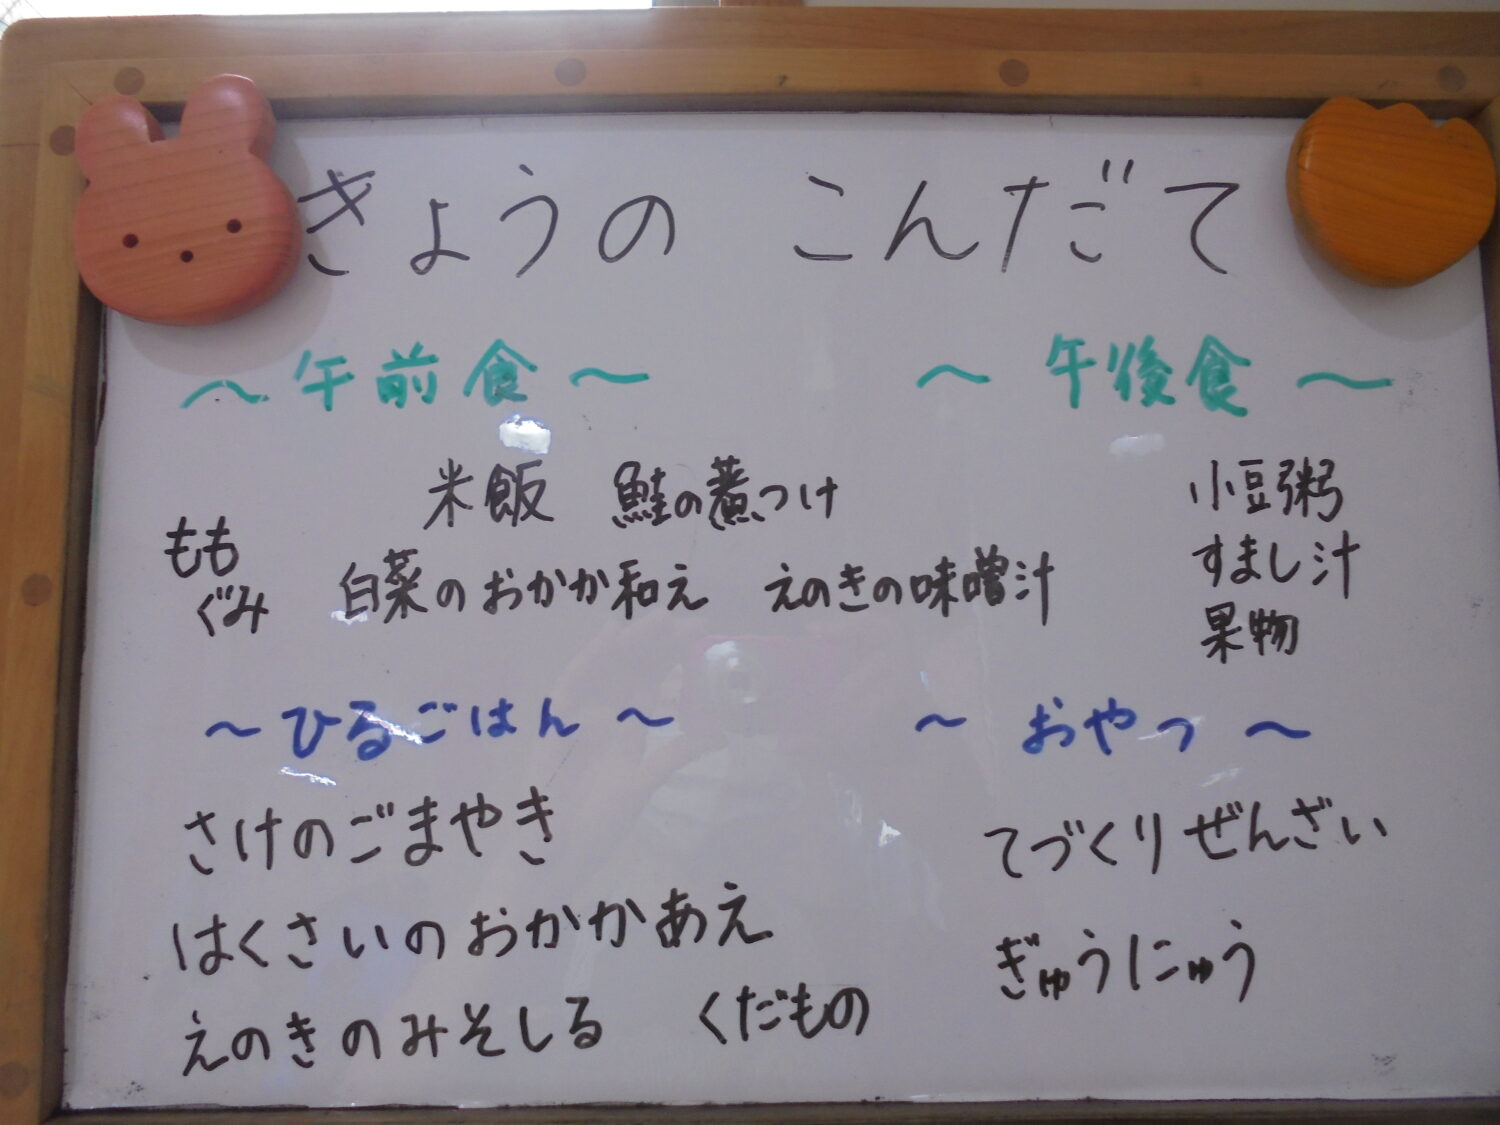 きょうの こんだて
～午前食～
ももぐみ
米飯 鮭の煮つけ
白菜のおかか和え えのきの味噌汁
～午後食～
小豆粥
すまし汁
果物
～ひるごはん～
さけのごまやき
はくさいのおかかあえ
えのきのみそしる くだもの
～おやつ～
てづくりぜんざい
ぎゅうにゅう